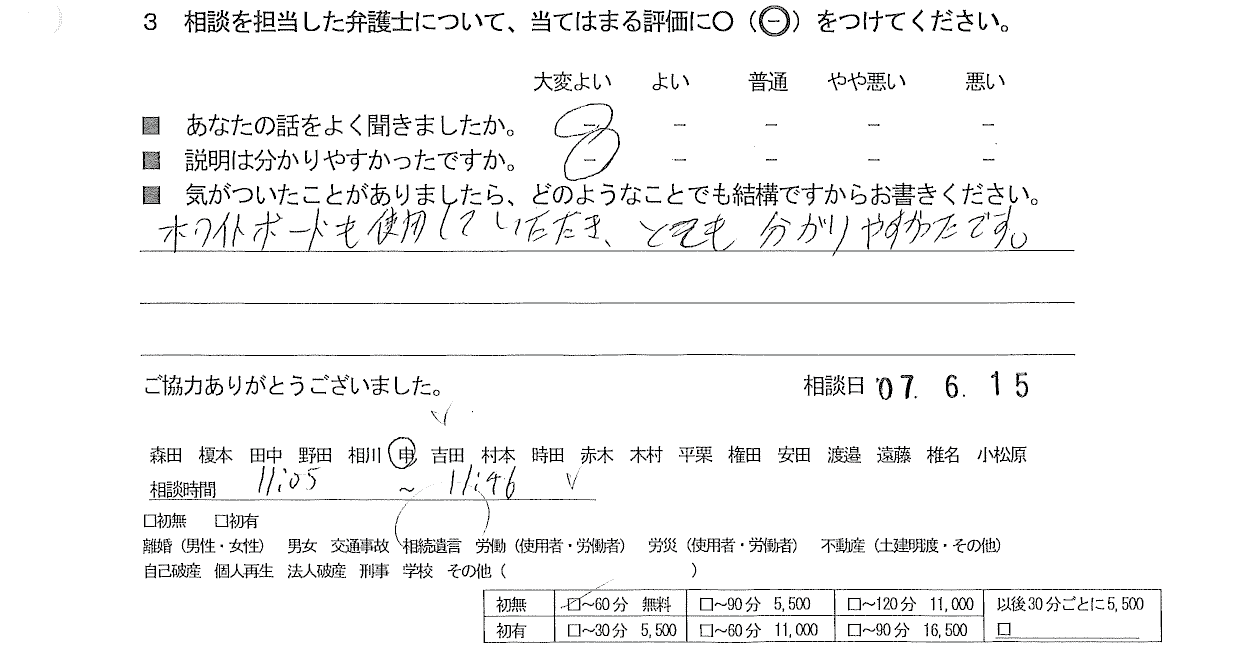 3 相談を担当した弁護士について、当てはまる評価に〇（㊀）をつけてください。
大変よい よい 普通 やや悪い 悪い
■ あなたの話をよく聞きましたか。 － － － － －
■ 説明は分かりやすかったですか。 － － － － －
■ 気がついたことがありましたら、どのようなことでも結構ですからお書きください。
ホワイトボードも使用していただき、とても分かりやすかったです。
ご協力ありがとうございました。 相談日 '07. 6. 15
森田 榎本 田中 野田 相川 申 吉田 村本 時田 赤木 木村 平栗 権田 安田 渡邉 遠藤 椎名 小松原
相談時間 11:05 ～ 11:46
□初無 □初有
離婚（男性・女性） 男女 交通事故 相続遺言 労働（使用者・労働者） 労災（使用者・労働者） 不動産（土建明渡・その他）
自己破産 個人再生 法人破産 刑事 学校 その他（ ）
初無 □～60分 無料 □～90分 5,500 □～120分 11,000 以後30分ごとに5,500
初有 □～30分 5,500 □～60分 11,000 □～90分 16,500 □